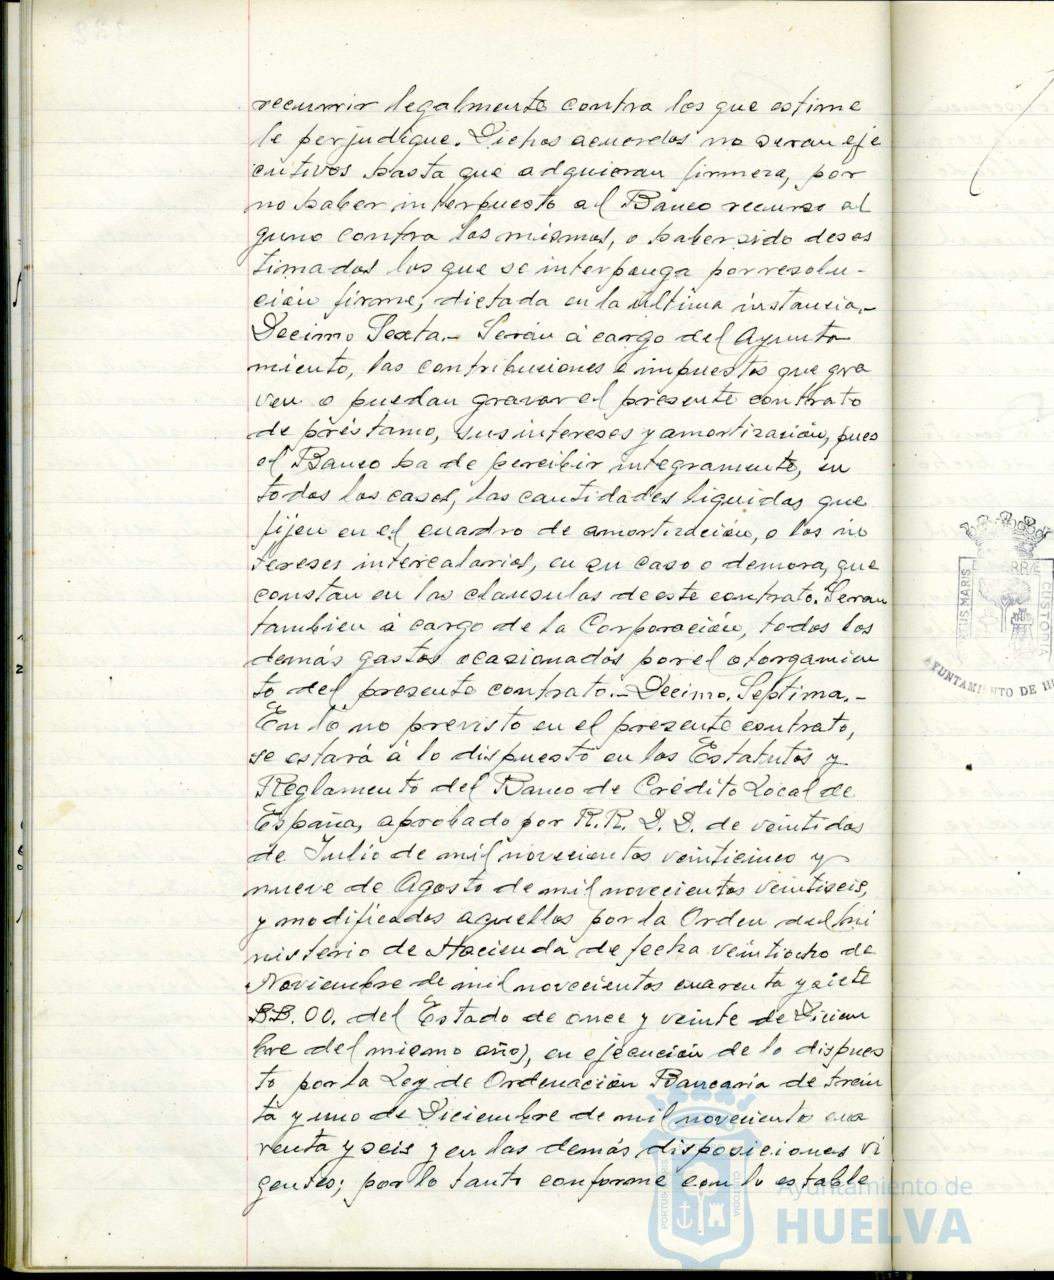 recurrir legalmente contra los que estime
le perjudique. Dichos acuerdos no seran eje
cutivos hasta que adquieran firmeza, por
no haber interpuesto el Banco recurso al
guno contra los mismos, o haber sido deses
timados los que se interponga por resolu-
ción firme, dictada en la última instancia.-
Decimo Sexta.- Serán á cargo del Ayunta
miento, las contribuciones e impuestos que gra
ven o puedan gravar el presente contrato
de préstamo, sus intereses y amortización, pues
el Banco ha de percibir integramente, en
todos los casos, las cantidades liquidas que
fijen en el cuadro de amortización, o los in
tereses intercalarios, en su caso o demora, que
constan en las clausulas de este contrato. Seran
tambien á cargo de la Corporación, todos los
demás gastos ocasionados por el otorgamien
to del presente contrato.- Decimo Septima.-
En lo no previsto en el presente contrato,
se estará á lo dispuesto en los Estatutos y
Reglamento del Banco de Crédito Local de
España, aprobado por R.R. D.D. de veintidos
de Julio de mil novecientos veinticinco y
nueve de Agosto de mil novecientos veintiseis,
y modificados aquellos por la Orden del Mi
nisterio de Hacienda de fecha veintiocho de
Noviembre de mil novecientos cuarenta y siete
BB. OO. del Estado de once y veinte de Diciem
bre del mismo año), en ejecución de lo dispues
to por la Ley de Ordenación Bancaria de trein
ta y uno de Diciembre de mil novecientos cua
renta y seis y en las demás disposiciones vi
gentes; por lo tanto conforme con lo estable
PORTUS MARIS CUSTODIA
Ayuntamiento de
HUELVA